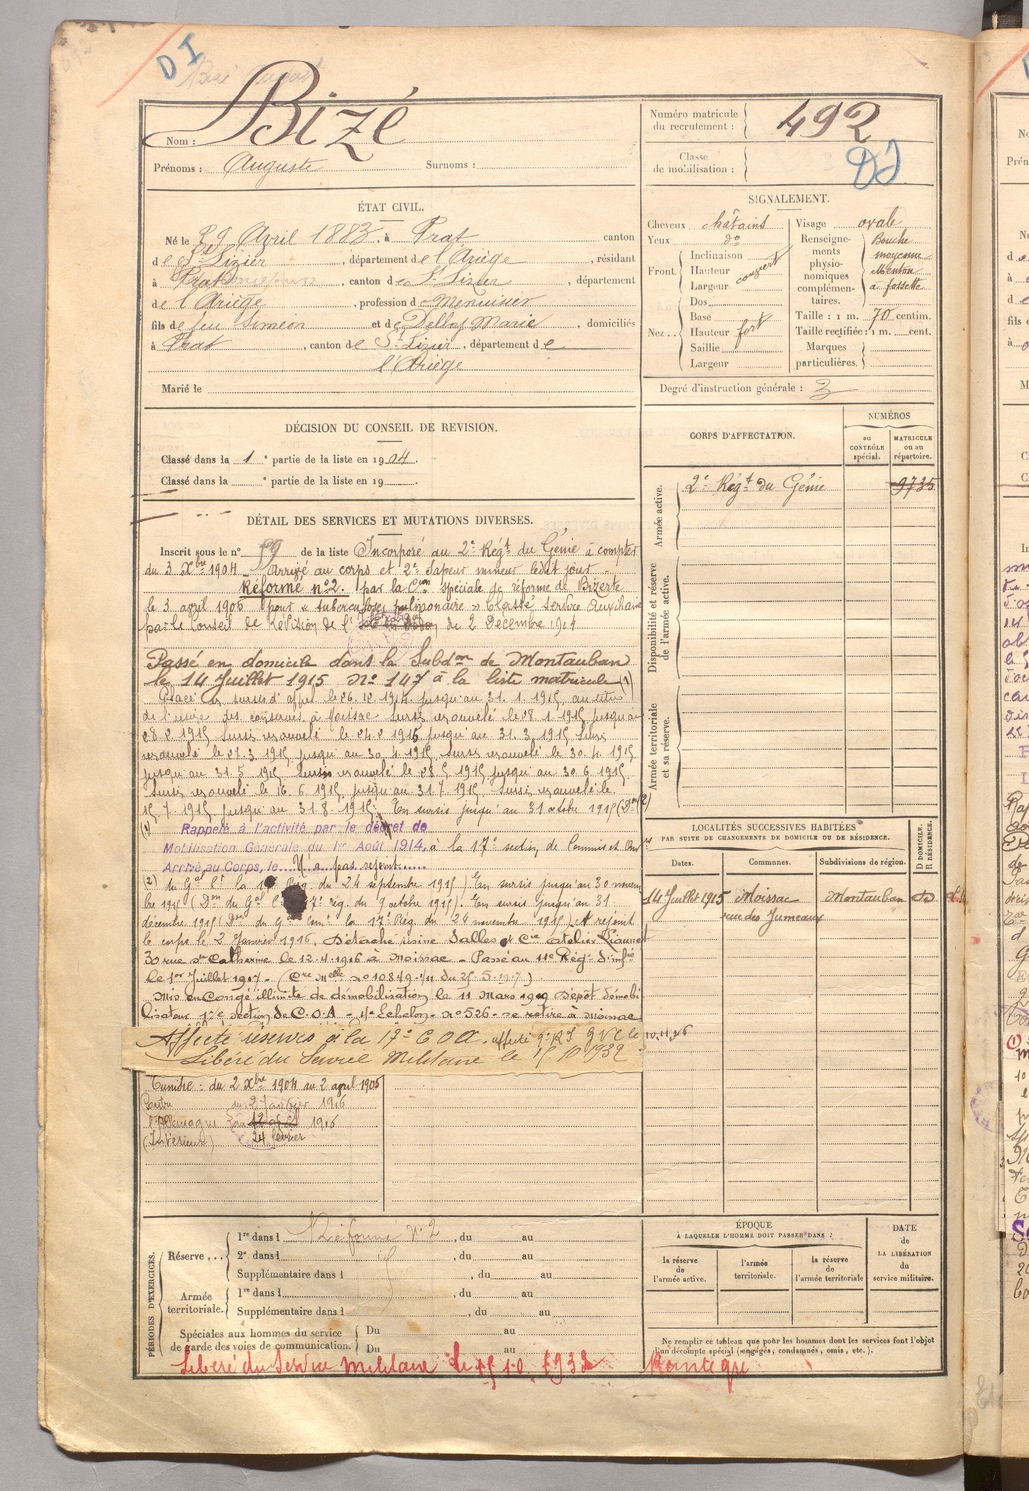 DI
Bizé
Nom :
Prénoms : Auguste Surnoms :
Numéro matricule du recrutement : 492
Classe de mobilisation :
ÉTAT CIVIL.
Né le 29 Avril 1883, à Prat canton
de St Lizier, département de l'Ariège, résidant
à Prat, canton de St Lizier, département
de l'Ariège, profession de Menuisier
fils de feu Siméon et de Marie, domiciliés
à Prat, canton de St Lizier, département de
l'Ariège
Marié le
SIGNALEMENT.
Cheveux châtains
Yeux do
Front. Inclinaison
Hauteur couvert
Largeur
Dos
Nez Base
Hauteur fort
Saillie
Largeur
Visage ovale
Renseignements physionomiques complémentaires. Bouche moyenne Menton à fossette
Taille : 1 m. 70 centim.
Taille rectifiée : 1 m. cent.
Marques particulières.
Degré d'instruction générale : 3
DÉCISION DU CONSEIL DE REVISION.
Classé dans la 1e partie de la liste en 1904.
Classé dans la e partie de la liste en 19
CORPS D'AFFECTATION.
NUMÉROS
au CONTRÔLE spécial.
MATRICULE ou au répertoire.
Armée active.
2e Régt du Génie 9735
Disponibilité et réserve de l'armée active.
Armée territoriale et sa réserve.
DÉTAIL DES SERVICES ET MUTATIONS DIVERSES.
Inscrit sous le n° 59 de la liste Incorporé au 2e Régt du Génie à compter
du 3 Xbre 1904 Arrivé au corps et 2e Sapeur mineur ledit jour
Réformé n°2. par la Cion spéciale de réforme de Bizerte
le 3 avril 1906 pour « tuberculose pulmonaire » Classé Service Auxiliaire
par le Conseil de Révision de l' du 2 Décembre 1914
Passé en domicile dans la Subdon de Montauban
le 14 Juillet 1915 No 147 à la liste matricule (1)
Placé en sursis d'appel le 26.12.1914 jusqu'au 31.1.1915, au titre
de l'usine des conserves à Moissac Sursis renouvelé le 28.1.1915 jusqu'au
28.2.1915 Sursis renouvelé le jusqu'au 31.3.1915 Sursis
renouvelé le 27.3.1915 jusqu'au 30.4.1915 Sursis renouvelé le 30.4.1915
jusqu'au 31.5.1915 Sursis renouvelé le 28.5.1915 jusqu'au 30.6.1915
Sursis renouvelé le 16.6.1915 jusqu'au 31.7.1915 Sursis renouvelé le
15.7.1915 jusqu'au 31.8.1915. En sursis jusqu'au 31 octobre 1915 (Don (2)
(1) Rappelé à l'activité par le décret de
Mobilisation Générale du 1er Août 1914, à la 17e section de Commis et Ouv
Arrivé au Corps, le N'a pas rejoint
(2) du Gal Ct la Rég. du 24 septembre 1915) En sursis jusqu'au 30 novem
bre 1915 (Don du Gal 17e rég. du 9 octobre 1915). En sursis jusqu'au 31
décembre 1915 (Don du Gal Comt la 17e Rég. du 24 novembre 1915) A rejoint
le corps le 2 Janvier 1916, Détaché usine Salles et Cie atelier
30 rue Ste Catherine le 12.4.1916 à Moissac - Passé au 11e Régt d'infie
le 1er Juillet 1917 - (Cre Mlle no 10849 1/11 du 25.5.1917)
Mis en Congé illimité de démobilisation le 11 Mars 1919 Dépôt démobi
lisateur 17e section de C.O.A - 4e Echelon - no 526 - se retire à Moissac
Affecté réserves à la 17e C O A. affecté
Libéré du Service Militaire le 15 10 1932
Tunisie : du 2 Xbre 1904 au 2 avril 1906
du 2 Janvier 1916
l'Allemagne au 1916
(Intérieur) 24 février
LOCALITÉS SUCCESSIVES HABITÉES
PAR SUITE DE CHANGEMENTS DE DOMICILE OU DE RÉSIDENCE.
D DOMICILE. R RÉSIDENCE.
Dates. Communes. Subdivisions de région.
14 Juillet 1915 Moissac Montauban D
rue des Jumeaux
PÉRIODES D'EXERCICES.
Réserve... 1re dans l Réformé n° 2, du au
2e dans l, du au
Supplémentaire dans l, du au
Armée territoriale. 1re dans l, du au
Supplémentaire dans l, du au
Spéciales aux hommes du service de garde des voies de communication. Du au
Du au
Libéré du Service Militaire le 15.10.1932
ÉPOQUE
À LAQUELLE L'HOMME DOIT PASSER DANS :
la réserve de l'armée active.
l'armée territoriale.
la réserve de l'armée territoriale
DATE de LA LIBÉRATION du service militaire.
Ne remplir ce tableau que pour les hommes dont les services font l'objet
d'un décompte spécial (engagés, condamnés, omis, etc.).